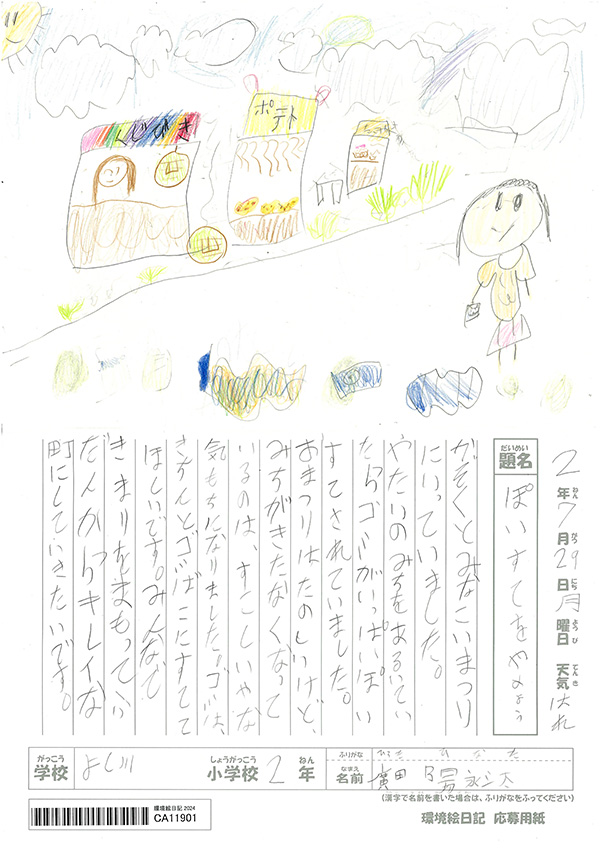 くじびき
ポテト
2年7月29日月曜日 天気はれ
ねん がつ にち ようび てんき
題名 ぽいすてをやめよう
だいめい
かぞくとみなこいまつり
にいっていました。
やたいのみちをあるいてい
たらゴミがいっぱいぽい
すてされていました。
おまつりはたのしいけど、
みちがきたなくなって
いるのは、すこしいやな
気もちになりました。ゴミは、
きちんとゴミばこにすてて
ほしいです。みんなで
きまりをまもってい
だんからキレイな
町にしていきたいです。
がっこう
学校 よし川
しょうがっこう
小学校 2年
ねん
ふりがな
なまえ
名前 廣田
(漢字で名前を書いた場合は、ふりがなをふってください)
環境絵日記 2024
CA11901
環境絵日記 応募用紙